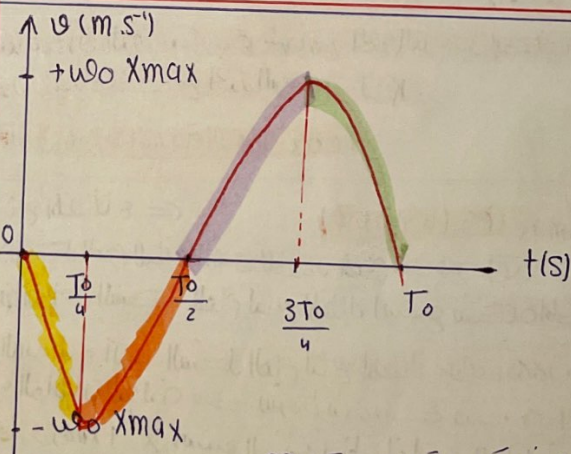 v (m.s⁻¹)
+ω₀ Xmax
0
T₀/4
T₀/2
3T₀/4
T₀
t(s)
-ω₀ Xmax